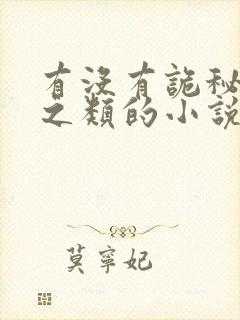 有没有詭秘
之類的小說
莫寧妃